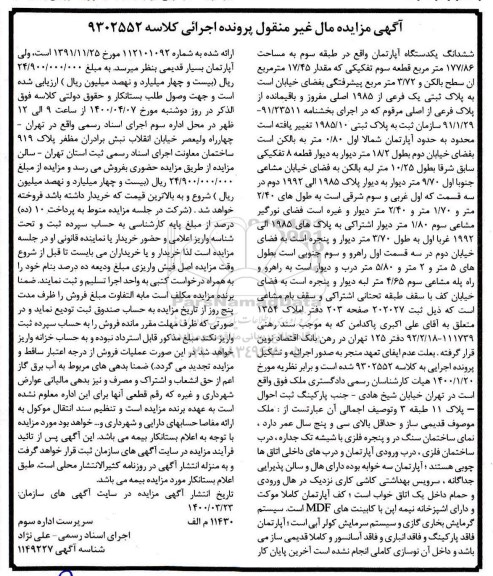 آگهی مزایده مال غیر منقول پرونده اجرائی کلاسه ۹۳۰۲۵۵۲
ششدانگ یکدستگاه آپارتمان واقع در طبقه سوم به مساحت
۱۷۷/۸۶ متر مربع قطعه سوم تفکیکی که مقدار ۱۷/۴۵ مترمربع
آن سطح بالکن و ۳/۷۲ متر مربع پیشرفتگی بفضای خیابان است
به پلاک ثبتی یک فرعی از ۱۹۸۵ اصلی مفروز و باقیمانده از
پلاک فرعی از اصلی مرقوم که در اجرای بخشنامه ۹۱/۲۳۵۱۱-
۹۱/۱/۲۹ سازمان ثبت به پلاک ثبتی ۱۹۸۵/۱۰ تغییر یافته است
محدود به حدود آپارتمان شمالا اول ۰/۸۰ متر به بالکن است
بفضای خیابان دوم بطول ۱۸/۲ متر دیوار به دیوار قطعه ۸ تفکیکی
سابق شرقا بطول ۱۰/۲۵ متر لبه بالکن به فضای خیابان مشاعی
جنوبا اول ۹/۷۰ متر دیوار به دیوار پلاک ۱۹۸۵ الی ۱۹۹۲ دوم در
سه قسمت که اول غربی و سوم شرقی است به طول های ۲/۴۰
متر و ۱/۷۰ متر و ۲/۴۰ متر دیوار و غیره است فضای نورگیر
مشاعی سوم ۱/۸۰ متر دیوار اشتراکی به پلاک های ۱۹۸۵ الی
۱۹۹۲ غربا اول به طول ۳/۷۰ متر دیوار و پنجره است به فضای
خیابان دوم در سه قسمت اول راهرو و سوم جنوبی است بطول
های ۵ متر و ۲ متر و ۵/۸۰ متر درب و دیوار است به راهرو و
راه پله مشاعی سوم ۴/۶۵ متر لبه دیوار و پنجره است به فضای
خیابان کف با سقف طبقه تحتانی اشتراکی و سقف بام مشاعی
است که ذیل ثبت ۲۰۲۰۲۷ صفحه ۲۰۳ دفتر املاک ۱۳۵۴
متعلق به آقای علی اکبری پاکدامن که به موجب سند رهنی
۱۱۱۷۳۹-۹۲/۲/۱۸ دفتر ۱۲۵ تهران در رهن بانک اقتصاد نوین
قرار گرفته . بعلت عدم ایفای تعهد منجر به صدور اجرائیه و تشکیل
پرونده اجرایی به کلاسه ۹۳۰۲۵۵۲ شده است و برابر نظریه مورخ
۱۴۰۰/۱/۲۰ هیات کارشناسان رسمی دادگستری ملک فوق واقع
است در تهران خیابان شیخ هادی – جنب پارکینگ ثبت احوال
– پلاک ۱۱ طبقه ۳ وتوصیف اجمالی آن عبارتست از : ملک
موصوف قدیمی ساز و حداقل بالای سی و پنج سال عمر دارد ،
نمای ساختمان سنگ در و پنجره فلزی با شیشه تک جداره ، درب
ساختمان فلزی ، درب ورودی آپارتمان و درب های داخلی اتاق ها
چوبی هستند ؛ آپارتمان سه خوابه بوده دارای هال و سالن پذیرایی
جداگانه ، سرویس بهداشتی کاشی کاری نزدیک در هال ورودی
و حمام داخل یک اتاق خواب است ؛ کف آپارتمان کاملا موکت
و دارای آشپزخانه نیمه اپن با کابینت های MDF است. سیستم
گرمایش بخاری گازی و سیستم سرمایش کولر آبی است ؛ آپارتمان
فاقد پارکینگ و فاقد انباری و فاقد آسانسور و کاملا قدیمی ساز می
باشد و داخل آن نوسازی کاملی انجام نشده است آخرین پایان کار
ارائه شده به شماره ۱۱۲۱۰۱۰۹۲ مورخ ۱۳۹۱/۱۱/۲۵ است، ولی
آپارتمان بسیار قدیمی بنظر میرسد. به مبلغ ۲۴/۹۰۰/۰۰۰/۰۰۰
ریال (بیست و چهار میلیارد و نهصد میلیون ریال ) ارزیابی شده
است و جهت وصول طلب بستانکار و حقوق دولتی کلاسه فوق
الذکر در روز دوشنبه مورخ ۱۴۰۰/۰۴/۰۷ از ساعت ۹ الی ۱۲
ظهر در محل اداره سوم اجرای اسناد رسمی واقع در تهران –
چهارراه ولیعصر خیابان انقلاب نبش برادران مظفر پلاک ۹۱۹
ساختمان معاونت اجرای اسناد رسمی ثبت استان تهران – سالن
مزایده از طریق مزایده حضوری بفروش می رسد و مزایده از مبلغ
۲۴/۹۰۰/۰۰۰/۰۰۰ ریال (بیست و چهار میلیارد و نهصد میلیون
ریال ) شروع و به بالاترین قیمت که خریدار داشته باشد فروخته
خواهد شد . (شرکت در جلسه مزایده منوط به پرداخت ۱۰ (ده)
درصد از مبلغ پایه کارشناسی به حساب سپرده ثبت و تحت
شناسه واریز اعلامی و حضور خریدار یا نماینده قانونی او در جلسه
مزایده است لذا خریدار و یا خریداران می بایست تا قبل از شروع
وقت مزایده اصل فیش واریزی مبلغ ودیعه ده درصد بنام خود را
به همراه درخواست کتبی به واحد اجرا تسلیم و ثبت نمایند. ضمنا
برنده مزایده مکلف است مابه التفاوت مبلغ فروش را ظرف مدت
پنج روز از تاریخ مزایده به حساب صندوق ثبت تودیع نماید و در
صورتی که ظرف مهلت مقرر مانده فروش را به حساب سپرده ثبت
واریز نکند مبلغ مذکور قابل استرداد نبوده و به حساب خزانه واریز
خواهد شد در این صورت عملیات فروش از درجه اعتبار ساقط و
مزایده تجدید می گردد.) ضمنا بدهی های مربوط به آب برق گاز
اعم از حق انشعاب و اشتراک و مصرف و نیز بدهی مالیاتی عوارض
شهرداری و غیره که رقم قطعی آنها برای این اداره معلوم نشده
است به عهده برنده مزایده است و تنظیم سند انتقال موکول به
ارائه مفاصا حسابهای دارایی و شهرداری و.. خواهد بود مورد مزایده
با توجه به اعلام بستانکار بیمه می باشد. این آگهی پس از تائید
فرآیند مزایده در سایت آگهی های سازمان ثبت قرار خواهد گرفت
و به منزله انتشار آگهی در روزنامه کثیرالانتشار محلی است. طبق
اعلام بستانکار مورد مزایده بیمه می باشد.
تاریخ انتشار آگهی مزایده در سایت آگهی های سازمان:
۱۴۰۰/۰۳/۲۳
۱۱۴۳۰ م الف
سرپرست اداره سوم
اجرای اسناد رسمی–علی نژاد
شناسه آگهی ۱۱۴۹۲۲۷